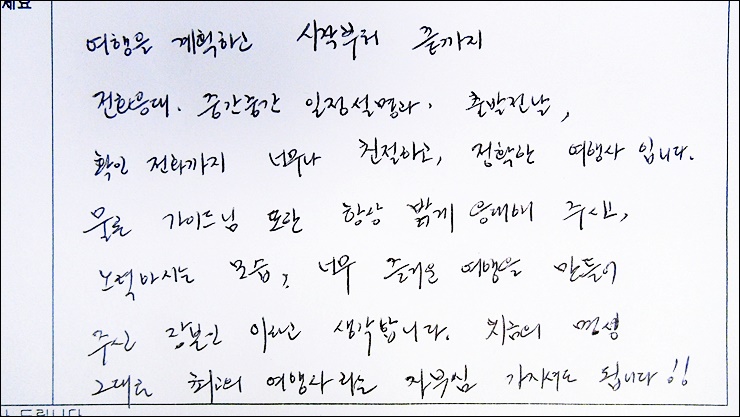 세요
여행을 계획하고 시작부터 끝까지
전화응대. 중간중간 일정설명과. 출발전날,
확인 전화까지 너무나 친절하고, 정확한 여행사 입니다.
물론 가이드님 또한 항상 밝게 응대해 주시고,
노력하시는 모습, 너무 즐거운 여행을 만들어
주신 장본인 이라고 생각합니다. 지금의 명성
그대로 최고의 여행사라는 자부심 가지셔도 됩니다!!
드립니다